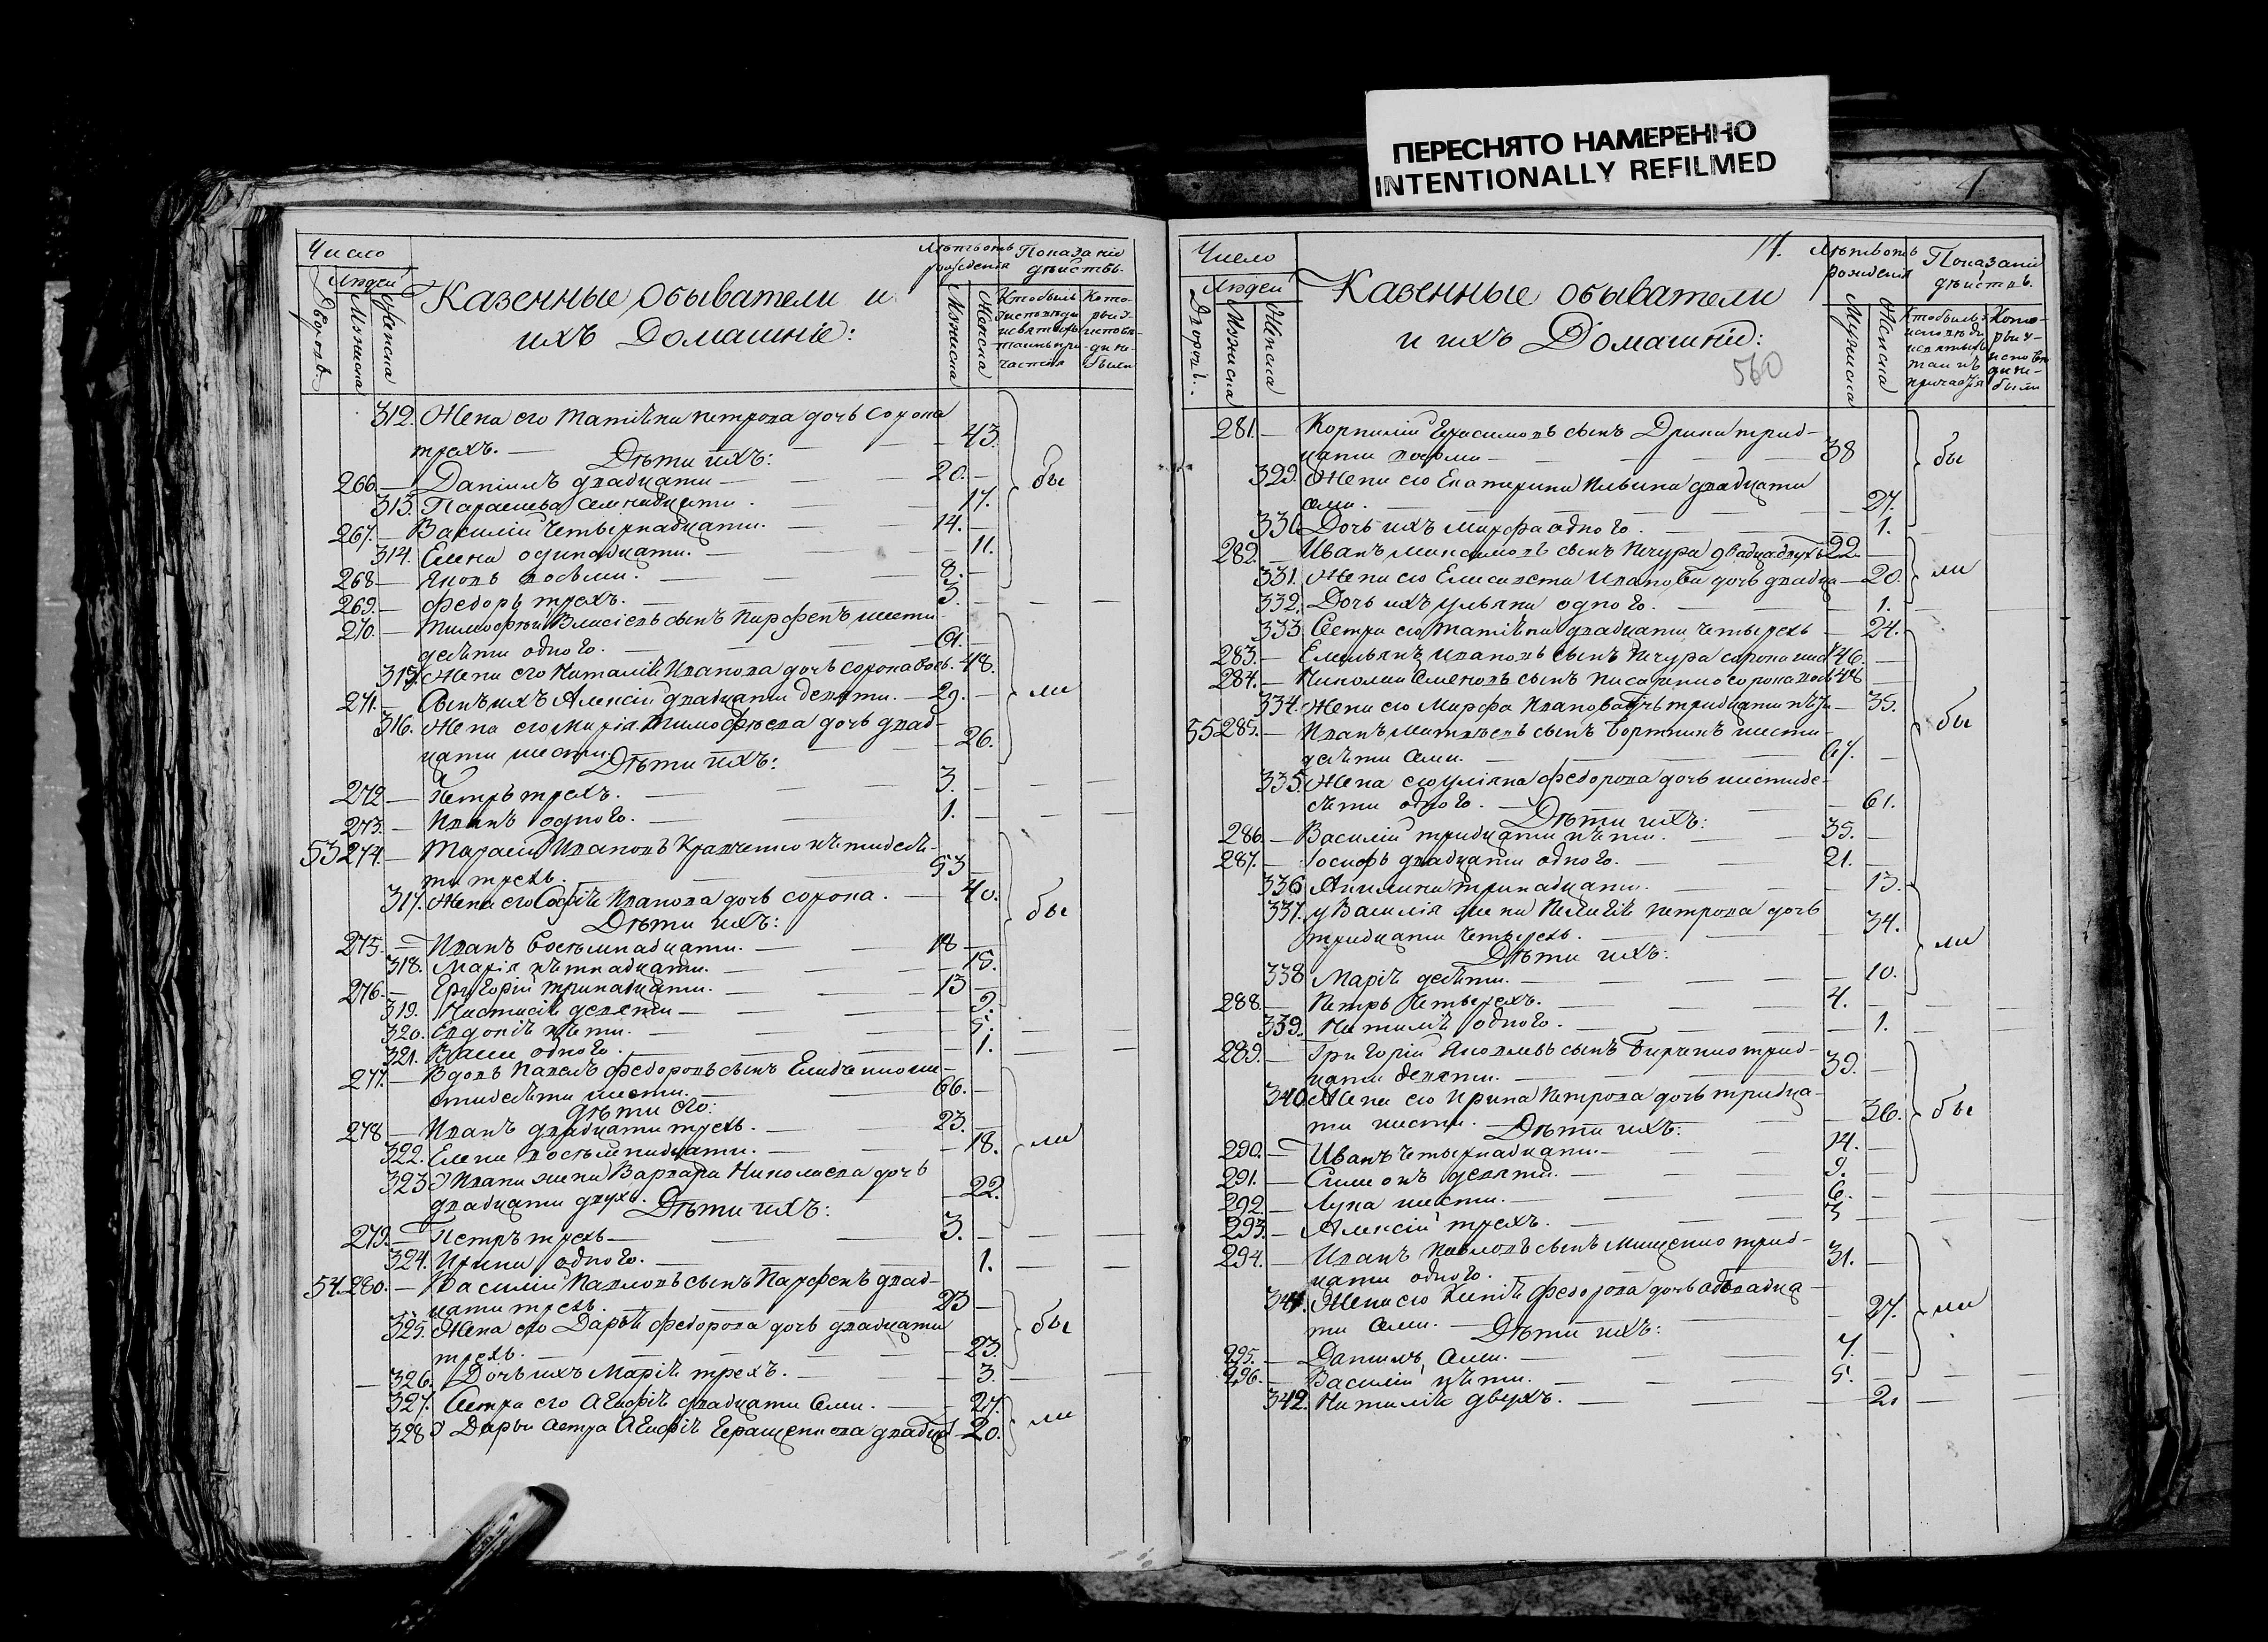 ПЕРЕСНЯТО НАМЕРЕННО
INTENTIONALLY REFILMED
Число
Людей
Дворовъ.
Мужиска
Женска
Казенные Обыватели и
ихъ Домашніе:
Лѣтъ отъ рожденія
Мужиска
Женска
Показаніе дѣйствъ.
312. Жена его Татіяна Петрова дочь сорока
трехъ. — 43.
Дѣти ихъ:
266. — Даніилъ двадцати — 20. —
313. Параскева семнадцати. 17.
267. — Василій четырнадцати. — 14. —
314. Елена одинадцати. — 11.
268. — Яковъ восьми. — 8. —
269. — Федоръ трехъ. — 3. — —
бы
270. — Тимофѣй Власіевъ сынъ Парфенъ шести
десяти одного. — 61. —
315. Жена его Наталія Иванова дочь сорока вось. 48.
271. — Сынъ ихъ Алексій двадцати девяти. — 29. —
316. Жена его Марія Тимофѣева дочь двад-
цати шести. — 26.
ли
Дѣти ихъ:
272. — Петръ трехъ. — 3. — —
273. — Иванъ одного. — 1. — —
53 274. — Тарасій Ивановъ Кравченко пятидеся-
ти трехъ. — 53 —
317. Жена его Софія Иванова дочь сорока. — 40.
Дѣти ихъ:
бы
275. — Иванъ восьмнадцати. — 18 —
318. Марія пятнадцати. — 15.
276. — Григорій тринадцати. — 13 —
319. Настасія девяти — 9.
320. Евдокія пяти. — 5. — —
321. одного. — 1. — —
277. — Вдовъ Павелъ Федоровъ сынъ ше-
стидесяти шести. — 66. —
дѣти его:
278 — Иванъ двадцати трехъ. — 23. —
322. Елена восьмнадцати. — 18.
ли
323 У Ивана жена Варвара Николаева дочь
двадцати двухъ. — 22.
Дѣти ихъ:
279. — Петръ трехъ — 3. — —
324. Ирина одного. — 1. — —
54. 280. — Василій Павловъ сынъ Парфенъ двад-
цати трехъ. — 23 —
325. Жена его Дарья Федорова дочь двадцати
трехъ. — 23.
бы
326. Дочь ихъ Марія трехъ. — 3. — —
327. Сестра его Агафія двадцати семи. — 27.
328 У Дарьи сестра Агафія Геращенкова двадца 20.
ли
Число
Людей
Дворовъ.
Мужиска
Женска
14.
Казенные Обыватели
и ихъ Домашніе:
560
Лѣтъ отъ рожденія
Мужиска
Женска
Показаніе дѣйствъ.
281. — Корнилій Герасимовъ сынъ трид-
цати восьми — 38
бы
329. Жена его Екатерина двадцати
семи. — 27.
330 Дочь ихъ Марфа одного. — 1.
282. — Иванъ Максимовъ сынъ Печура двадца двухъ 22 —
331. Жена его Елисавета Иванова дочь двадца — 20.
ли
332. Дочь ихъ Ульяна одного. — 1. —
333 Сестра его Татіяна двадцати четырехъ — 24.
283. — Емельянъ Ивановъ сынъ Печура сорока шест 46. —
284. — Николай Семеновъ сынъ Писаренко сорока вось 48 —
334. Жена его Марфа Иванова дчь тридцати пяти — 35.
бы
55 285. — Иванъ Матвѣевъ сынъ Бортникъ шести
десяти семи. — 67. —
335. Жена его Уліяна Федорова дочь шестиде-
сяти одного. — 61.
Дѣти ихъ:
286. — Василій тридцати пяти. — 35. —
287. — Іосифъ двадцати одного. — 21. —
336 Акилина тринадцати. — 13.
337. у Василія жена Пелагія Петрова дочь
тридцати четырехъ. — 34.
Дѣти ихъ:
ли
338 Марія десяти. — 10.
288. — Петръ четырехъ. — 4. — —
339. Наталія одного. — 1. —
289. — Григорій Яковлевъ сынъ Бирченко трид-
цати девяти. — 39. —
340 Жена его Ирина Петрова дочь тридца-
ти шести. — 36.
бы
Дѣти ихъ:
290. — Иванъ четырнадцати. — 14. —
291. — Симеонъ девяти. — 9. —
292. — Лука шести. — 6. —
293. — Алексій трехъ. — 3 — —
294. — Иванъ Павловъ сынъ Мищенко трид-
цати одного. — 31. —
341. Жена его Ксенія Федорова дочь двадца-
ти семи. — 27.
ли
Дѣти ихъ:
295. — Даніилъ семи. — 7. —
296. — Василій пяти. — 5. —
342. Наталія двухъ. — 2. —